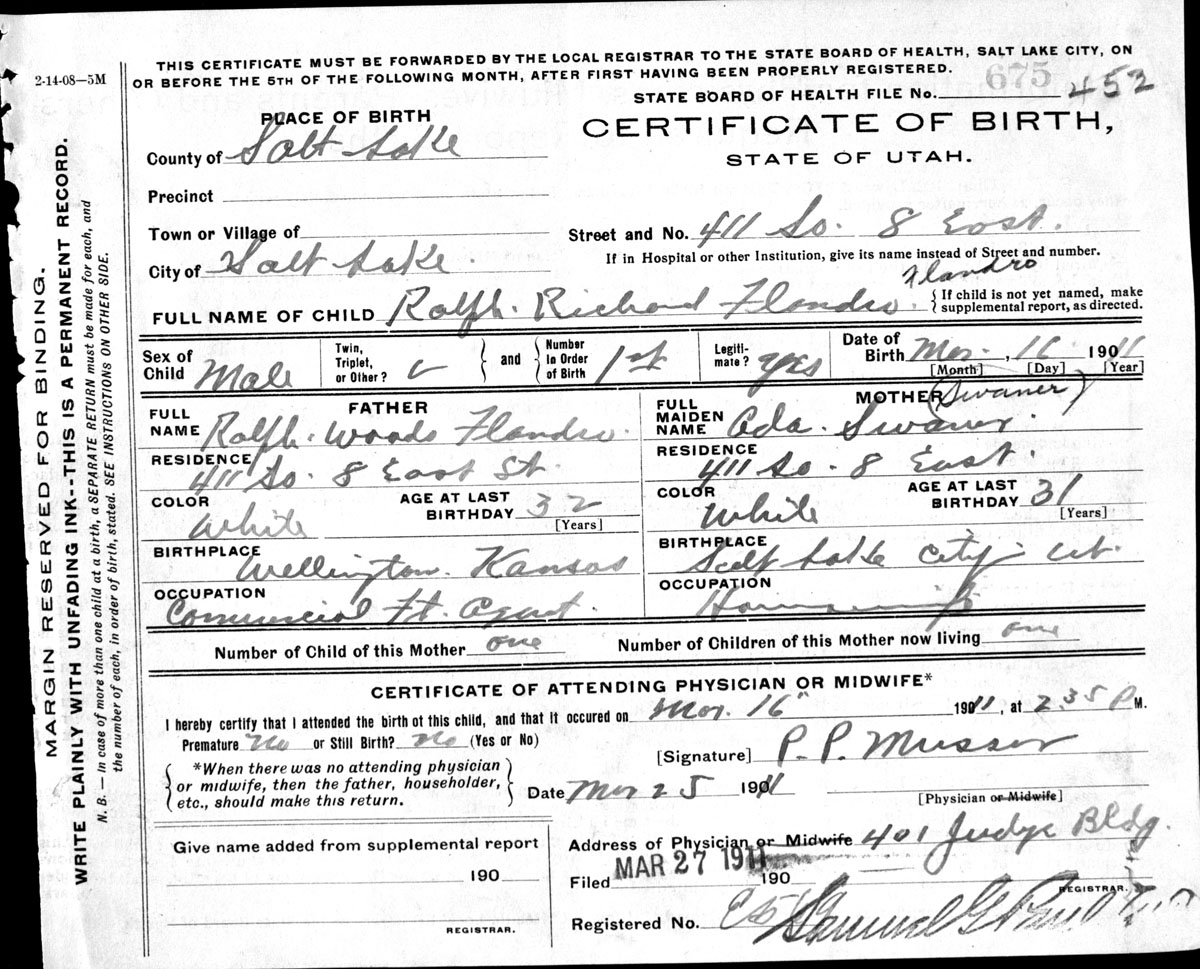 2-14-08—5M
THIS CERTIFICATE MUST BE FORWARDED BY THE LOCAL REGISTRAR TO THE STATE BOARD OF HEALTH, SALT LAKE CITY, ON
OR BEFORE THE 5TH OF THE FOLLOWING MONTH, AFTER FIRST HAVING BEEN PROPERLY REGISTERED.
STATE BOARD OF HEALTH FILE No. 675 452
PLACE OF BIRTH
CERTIFICATE OF BIRTH,
STATE OF UTAH.
County of Salt Lake
Precinct
Town or Village of
Street and No. 411 So. 8 East.
City of Salt Lake
If in Hospital or other Institution, give its name instead of Street and number.
Flandro
FULL NAME OF CHILD Ralph. Richard Flandro.
{If child is not yet named, make
supplemental report, as directed.
Sex of
Child Male
Twin,
Triplet,
or Other?
and
Number
in Order
of Birth 1st
Legiti-
mate? yes
Date of
Birth Mar. , 16 1911
[Month] [Day] [Year]
FATHER
FULL
NAME Ralph. Woods Flandro.
RESIDENCE
411 So. 8 East St.
COLOR
White
AGE AT LAST
BIRTHDAY 32
[Years]
BIRTHPLACE
Wellington. Kansas
OCCUPATION
Commercial Ft. Agent.
MOTHER (Swaner)
FULL
MAIDEN
NAME Ada. Swaner
RESIDENCE
411 So. 8 East.
COLOR
White
AGE AT LAST
BIRTHDAY 31
[Years]
BIRTHPLACE
Salt Lake City Ut.
OCCUPATION
Housewife
Number of Child of this Mother one
Number of Children of this Mother now living one
CERTIFICATE OF ATTENDING PHYSICIAN OR MIDWIFE*
I hereby certify that I attended the birth of this child, and that it occured on Mar. 16" 1911, at 2.35 P M.
Premature No or Still Birth? No (Yes or No)
[Signature] P. P. Musser
*When there was no attending physician
or midwife, then the father, householder,
etc., should make this return.
Date Mar 25 1911
[Physician or Midwife]
Give name added from supplemental report
190
REGISTRAR.
Address of Physician or Midwife 401 Judge Bldg.
Filed MAR 27 1911 190
REGISTRAR.
Registered No. Samuel G Paul
MARGIN RESERVED FOR BINDING.
WRITE PLAINLY WITH UNFADING INK--THIS IS A PERMANENT RECORD.
N. B. — In case of more than one child at a birth, a SEPARATE RETURN must be made for each, and
the number of each, in order of birth, stated. SEE INSTRUCTIONS ON OTHER SIDE.